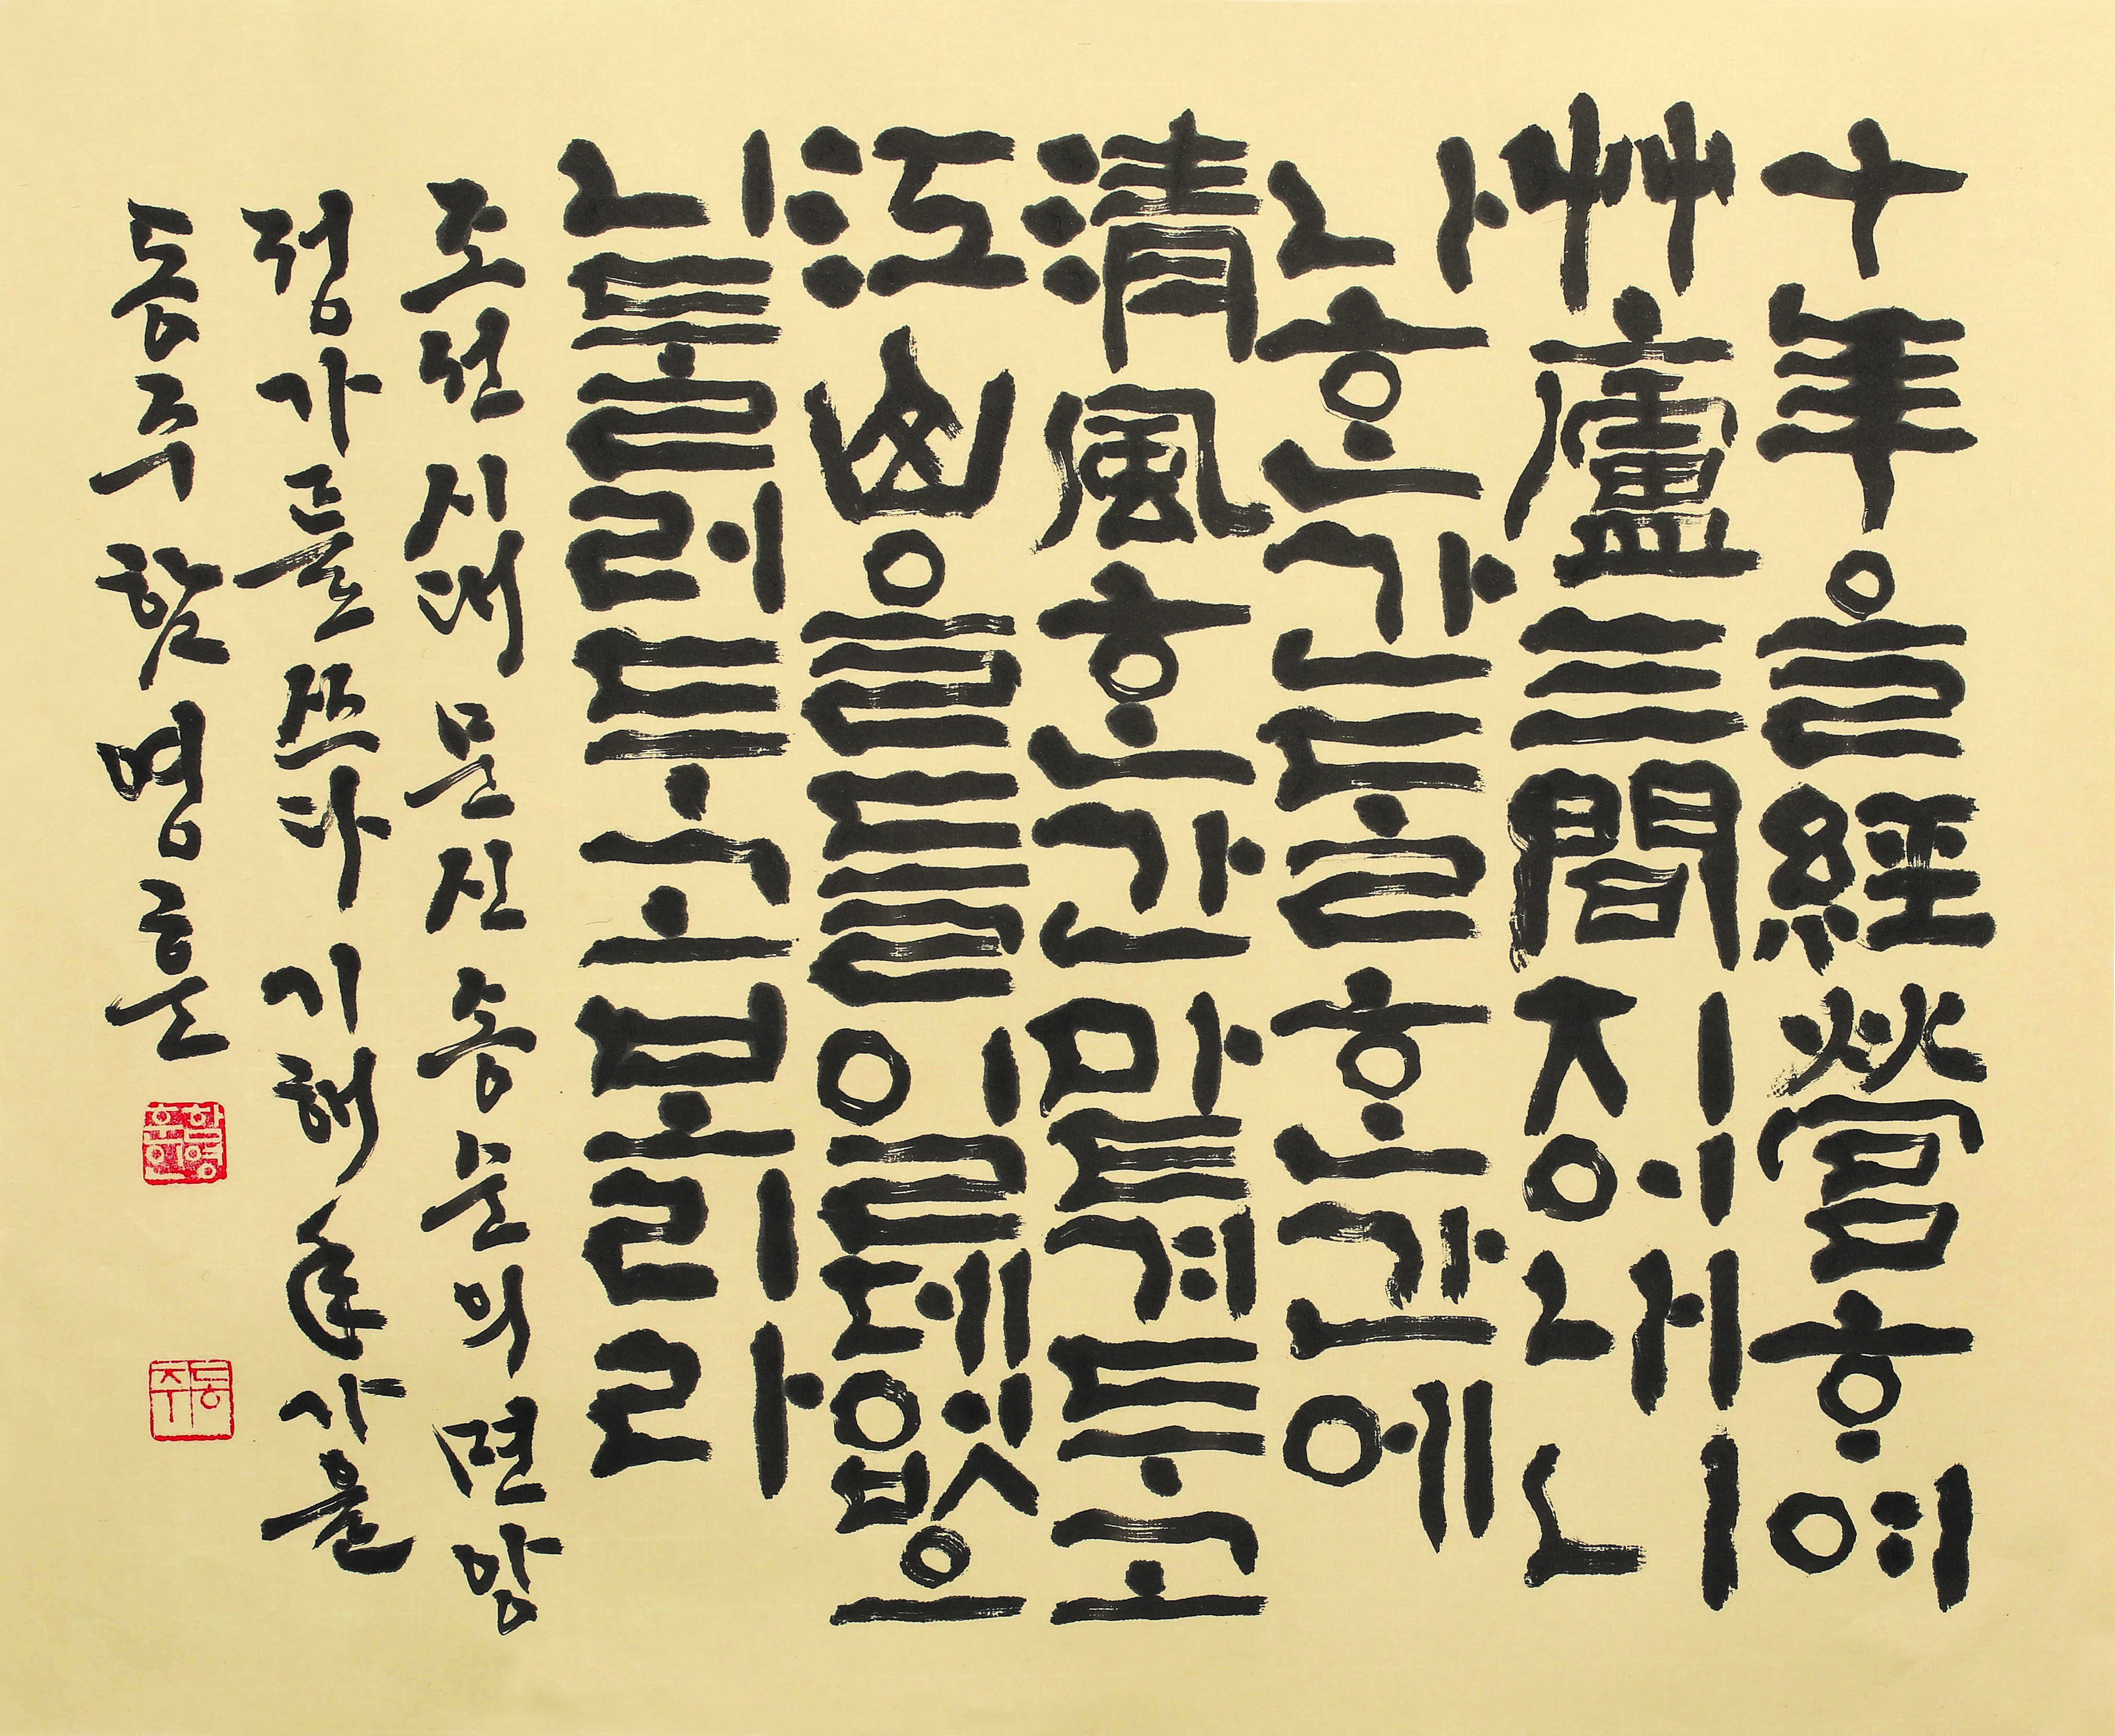 十年을經營ᄒᆞ여
艸廬三間지어내니
나ᄒᆞᆫ간ᄃᆞᆯᄒᆞᆫ간에
清風ᄒᆞᆫ간맡겨두고
江山을들일데없으
니둘러두고보리라
조선시대 문신 송순의 면앙
정가를 쓰다 기해年 가을
동주 명
동주